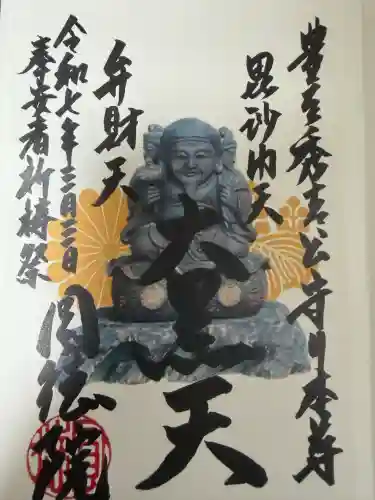 豊臣秀吉公守り本尊
毘沙門天
大黒天
弁財天
令和七年三月三日
奉安者祈祷祭
圓德院